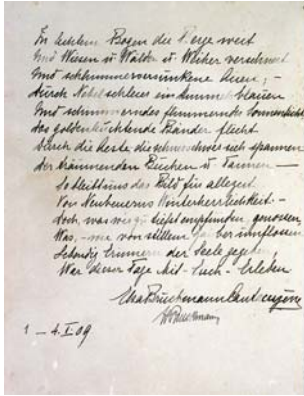 In lichtem Bogen die Berge weit
Und Wiesen u Wälder u Weiher verschneit
Und schlummerversunkene Auen, –
durch Nebelschleier ein Himmelblauen
Und schimmerndes flimmerndes Sonnenlicht
das goldenleuchtende Bänder flicht
Durch die Aeste die schneeschwer sich spannen
der träumenden Buchen u Tannen –
So bleibt uns das Bild für allezeit
Von Neubeuerns Winterherrlichkeit –
doch, was wir zu tiefst empfunden, genossen,
Was, – wie von stillem umflossen
Lebendig Erinnern der Seele gegeben,
War dieser Tage Mit-Euch-Erleben
Elsa Bruckmann Cantacuzène
HBruckmann
1 – 4. I. 09